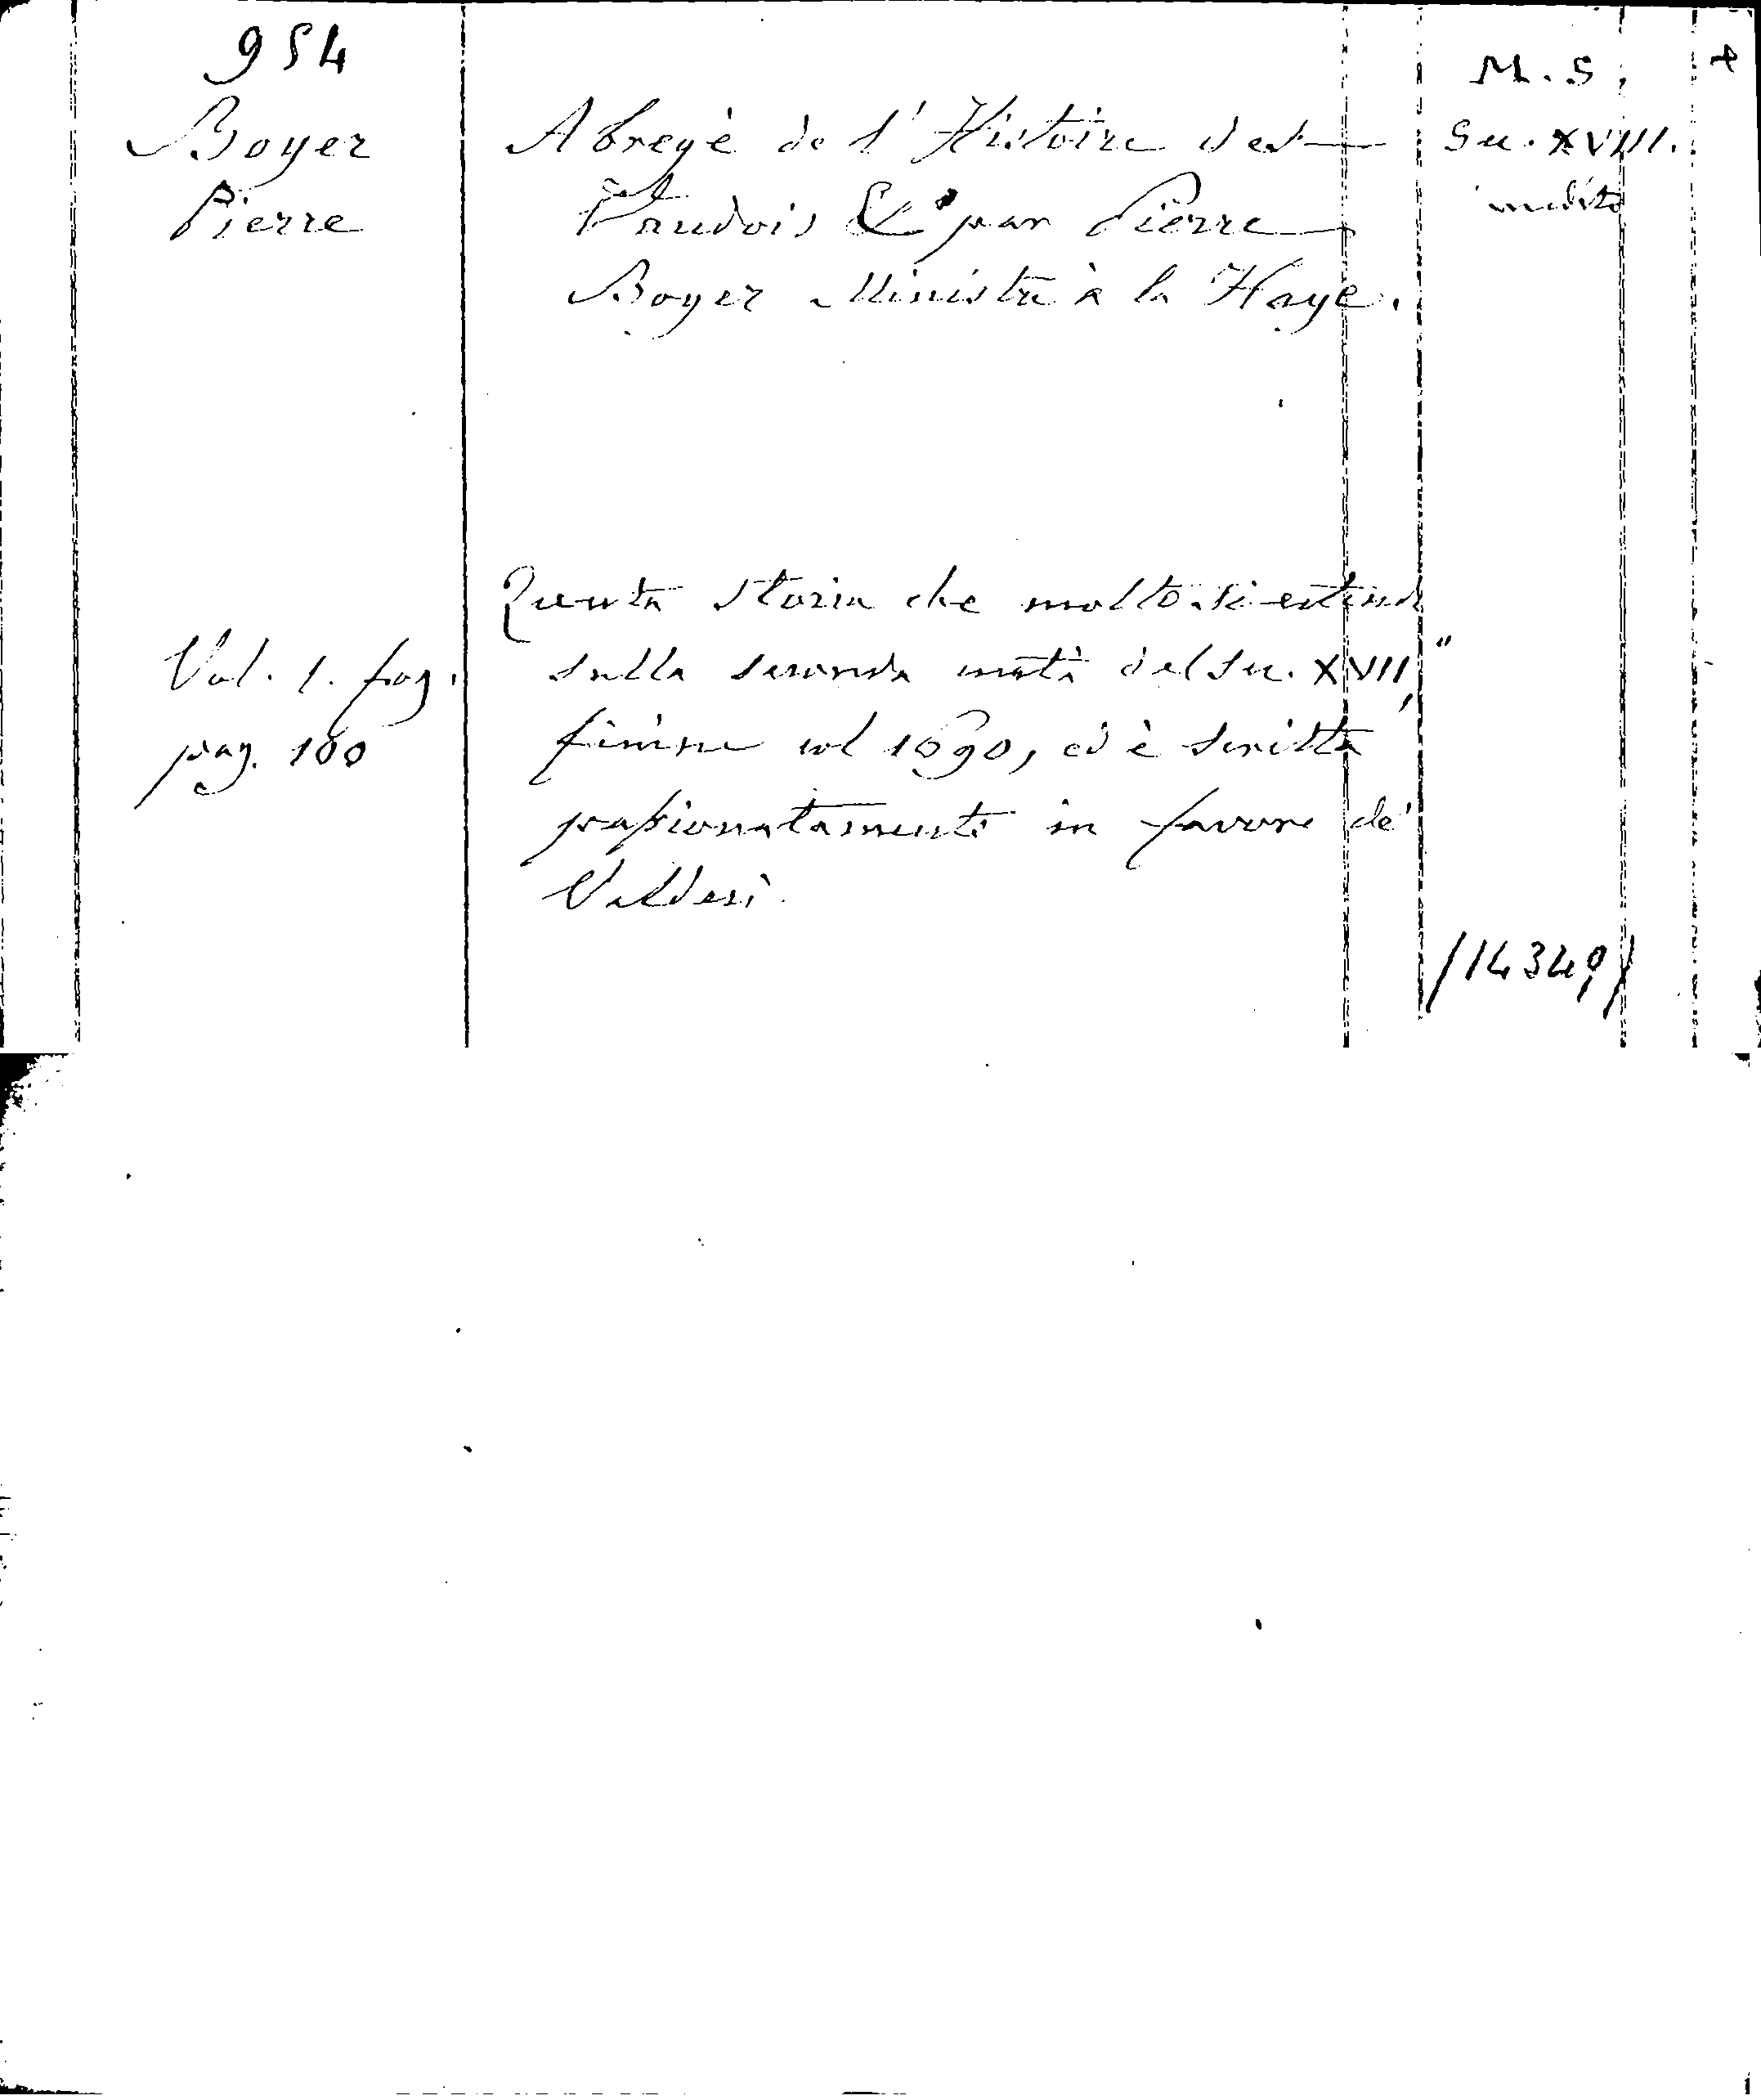 954
M. S.
+
Boyer
Pierre
Abregé de l'Histoire des
Vaudois &c par Pierre
Boyer Ministre à la Haye.
Sec. XVIII.
inedito
Vol. 1. fog.
pag. 180
Questa storia che molto si estende
sulla seconda metà del sec. XVII,
finisce col 1690, ed è scritta
passionatamente in favore de'
Valdesi.
/14349/